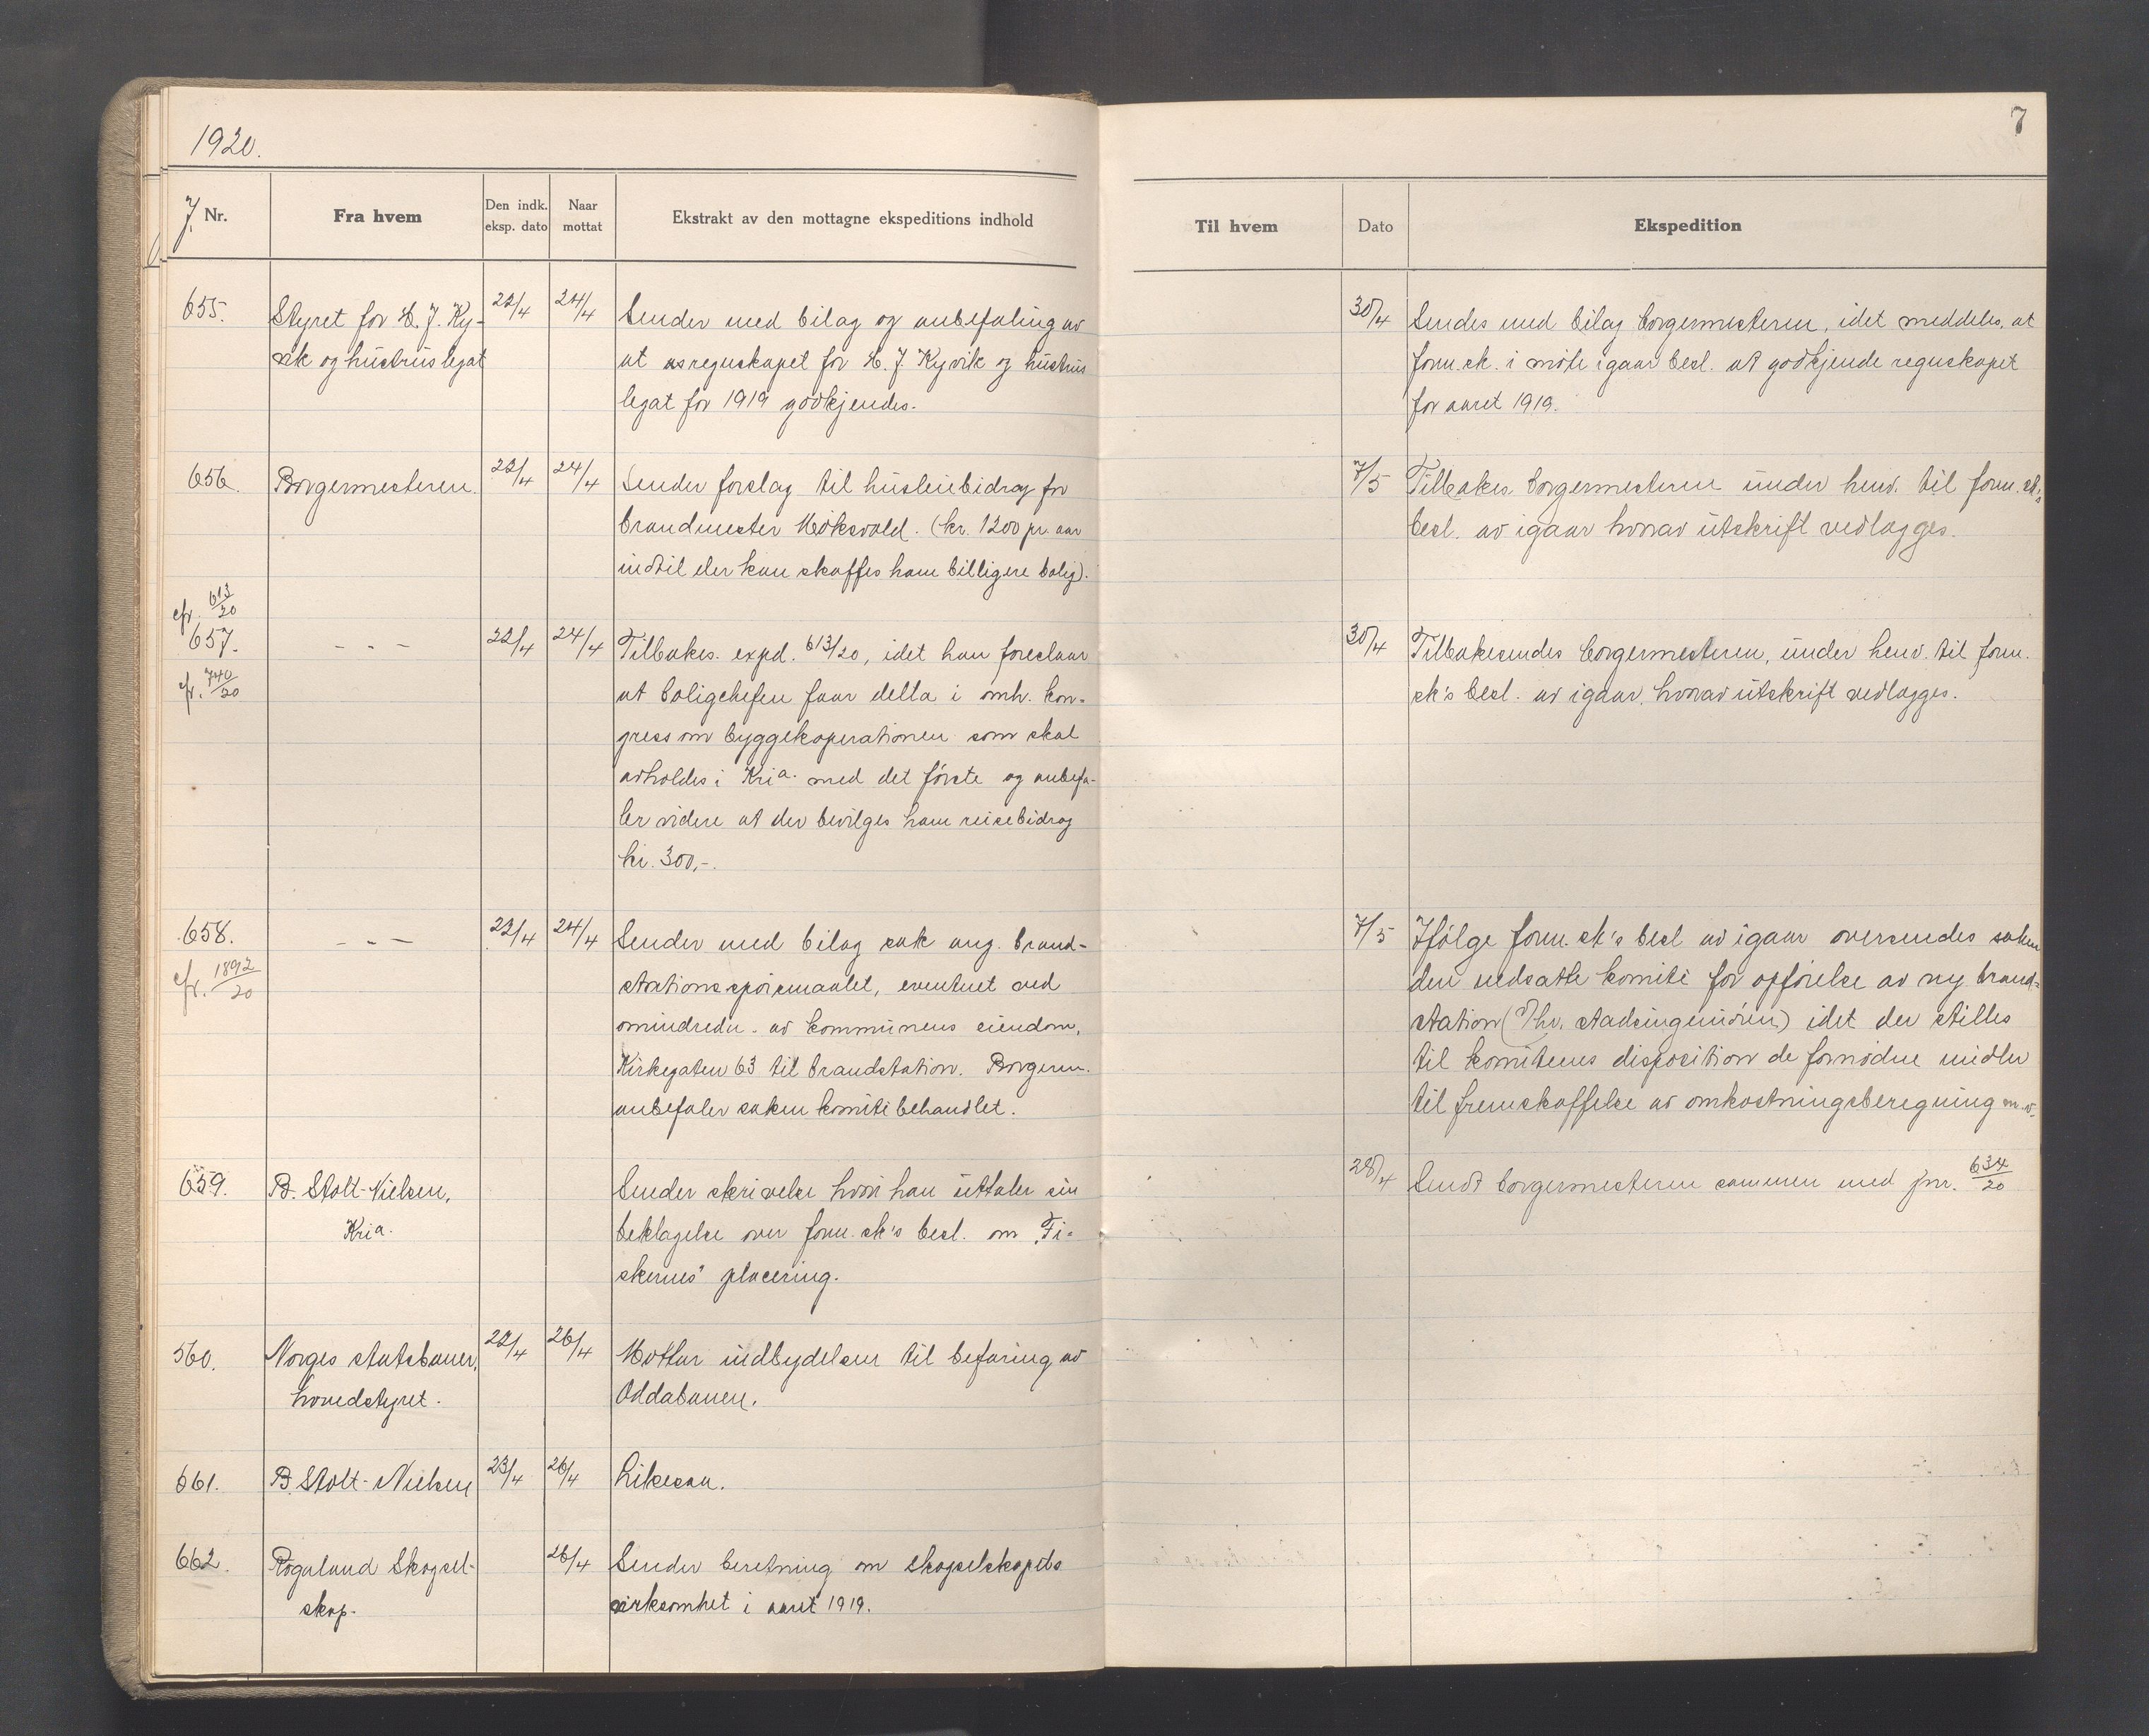 1920.
7
J. Nr.
Fra hvem
Den indk. eksp. dato
Naar mottat
Ekstrakt av den mottagne ekspeditions indhold
Til hvem
Dato
Ekspedition
655.
Styret for H. J. Ky-
vik og hustrus legat
22/4
24/4
Sender med bilag og anbefaling av
at regnskapet for H. J. Kyvik og hustrus
legat for 1919 godkjendes.
30/4
Sendes med bilag borgermesteren, idet meddeles, at
form.sk. i møte igaar besl. at godkjende regnskapet
for aaret 1919.
656.
Borgermesteren.
22/4
24/4
Sender forslag til husleiebidrag for
brandmester Høksvold. (kr. 1200 pr. aar
indtil der kan skaffes ham billigere bolig).
7/5
Tilbakes. borgermesteren under henv. til form.sk.'s
besl. av igaar hvorav utskrift vedlægges.
cfr. 613/20
657.
cfr. 740/20
- " -
22/4
24/4
Tilbakes. exped. 613/20, idet han foreslaar
at boligchefen faar delta i omh. kon-
gress om byggekoperationen som skal
avholdes i Kria. med det første og anbefa-
ler videre at der bevilges ham reisebidrag
kr. 300,-.
30/4
Tilbakesendes borgermesteren, under henv. til form.
sk's besl. av igaar, hvorav utskrift vedlægges.
658.
cfr. 1892/20
- " -
22/4
24/4
Sender med bilag sak ang. brand-
stationsspørsmaalet, eventuet ved
omindredn. av kommunens eiendom,
Kirkegaten 63 til brandstation. Borgerm.
anbefaler saken komitebehandlet.
7/5
Ifølge form.sk's besl av igaar oversendes saken
den nedsatte komite for opførelse av ny brand-
station (v/hr. stadsingeniøren) idet der stilles
til komiteens disposition de fornødne midler
til fremskaffelse av omkostningsberegning m.v.
659.
B. Stolt-Nielsen,
Kria.
Sender skrivelse hvori han uttaler sin
beklagelse over form.sk's besl. om „Fi-
skernes" placering.
28/4
Sendt borgermesteren sammen med jnr. 634/20
560.
Norges statsbaner,
hovedstyret.
22/4
26/4
Mottar indbydelsen til befaring av
Oddabanen.
661.
B. Stolt-Nielsen
23/4
26/4
Likesaa.
662.
Rogaland Skogsel-
skap.
26/4
Sender beretning om skogselskapets
virksomhet i aaret 1919.